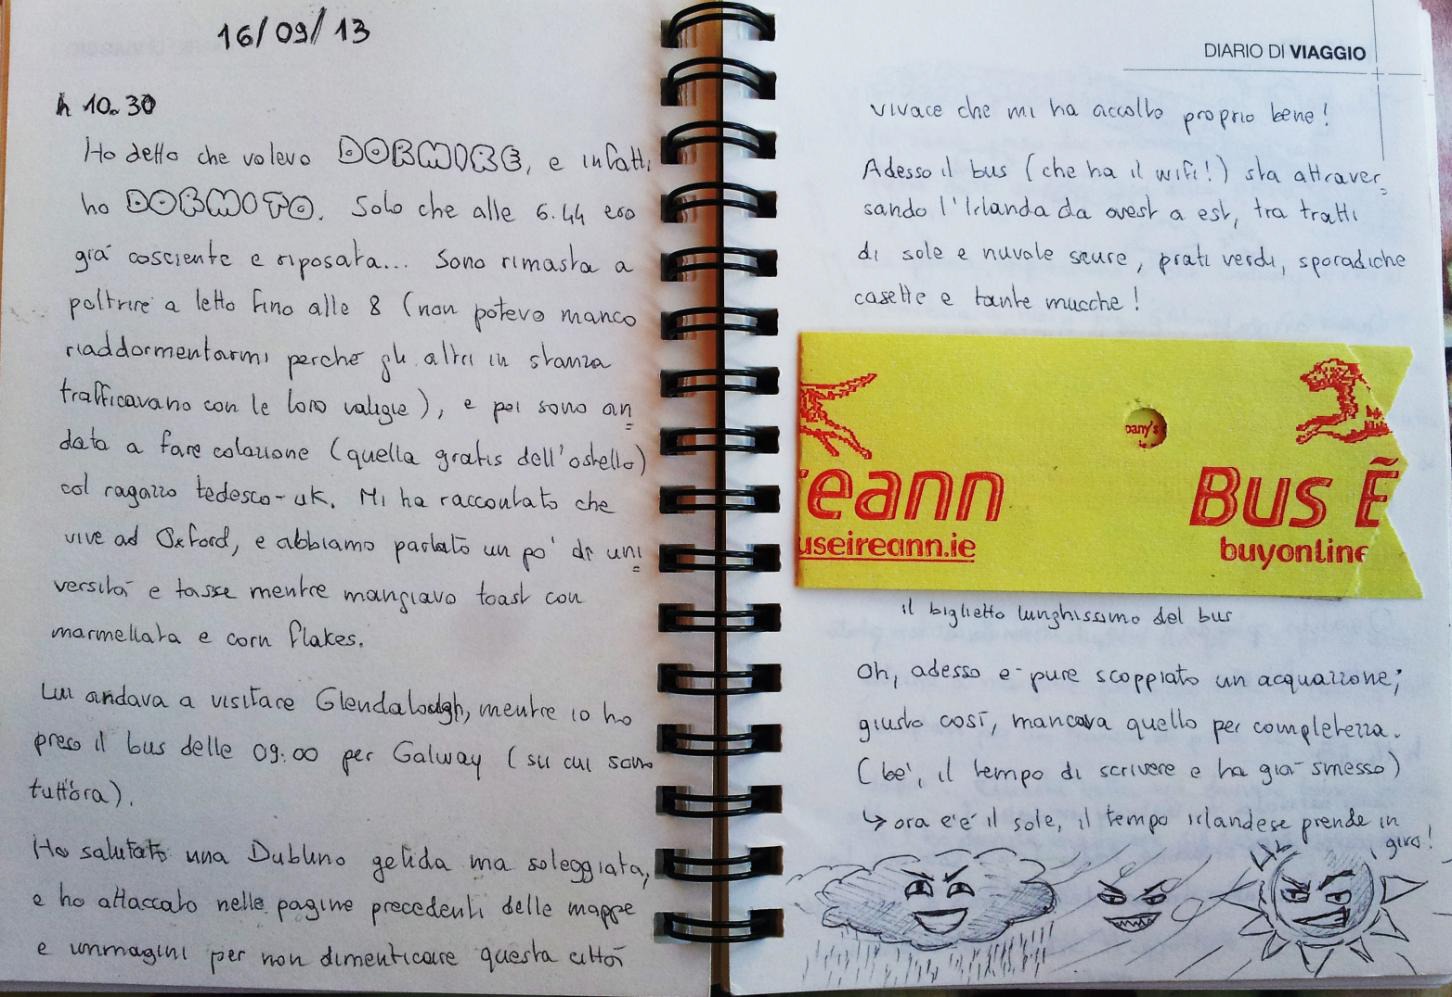 16/09/13
h 10.30
Ho detto che volevo DORMIRE, e infatti
ho DORMITO. Solo che alle 6.44 ero
già cosciente e riposata... Sono rimasta a
poltrire a letto fino alle 8 (non potevo manco
riaddormentarmi perché gli altri in stanza
trafficavano con le loro valigie), e poi sono an=
data a fare colazione (quella gratis dell'ostello)
col ragazzo tedesco-uk. Mi ha raccontato che
vive ad Oxford, e abbiamo parlato un po' di uni=
versità e tasse mentre mangiavo toast con
marmellata e corn flakes.
Lui andava a visitare Glendalough, mentre io ho
preso il bus delle 09:00 per Galway (su cui sono
tutt'ora).
Ho salutato una Dublino gelida ma soleggiata,
e ho attaccato nelle pagine precedenti delle mappe
e immagini per non dimenticare questa città
DIARIO DI VIAGGIO
vivace che mi ha accolto proprio bene!
Adesso il bus (che ha il wifi!) sta attraver=
sando l'Irlanda da ovest a est, tra tratti
di sole e nuvole scure, prati verdi, sporadiche
casette e tante mucche!
pany's
reann Bus É
useireann.ie buyonline
il biglietto lunghissimo del bus
Oh, adesso è pure scoppiato un acquazzone;
giusto così, mancava quello per completezza.
(be', il tempo di scrivere e ha già smesso)
↳ ora c'è il sole, il tempo irlandese prende in
giro!